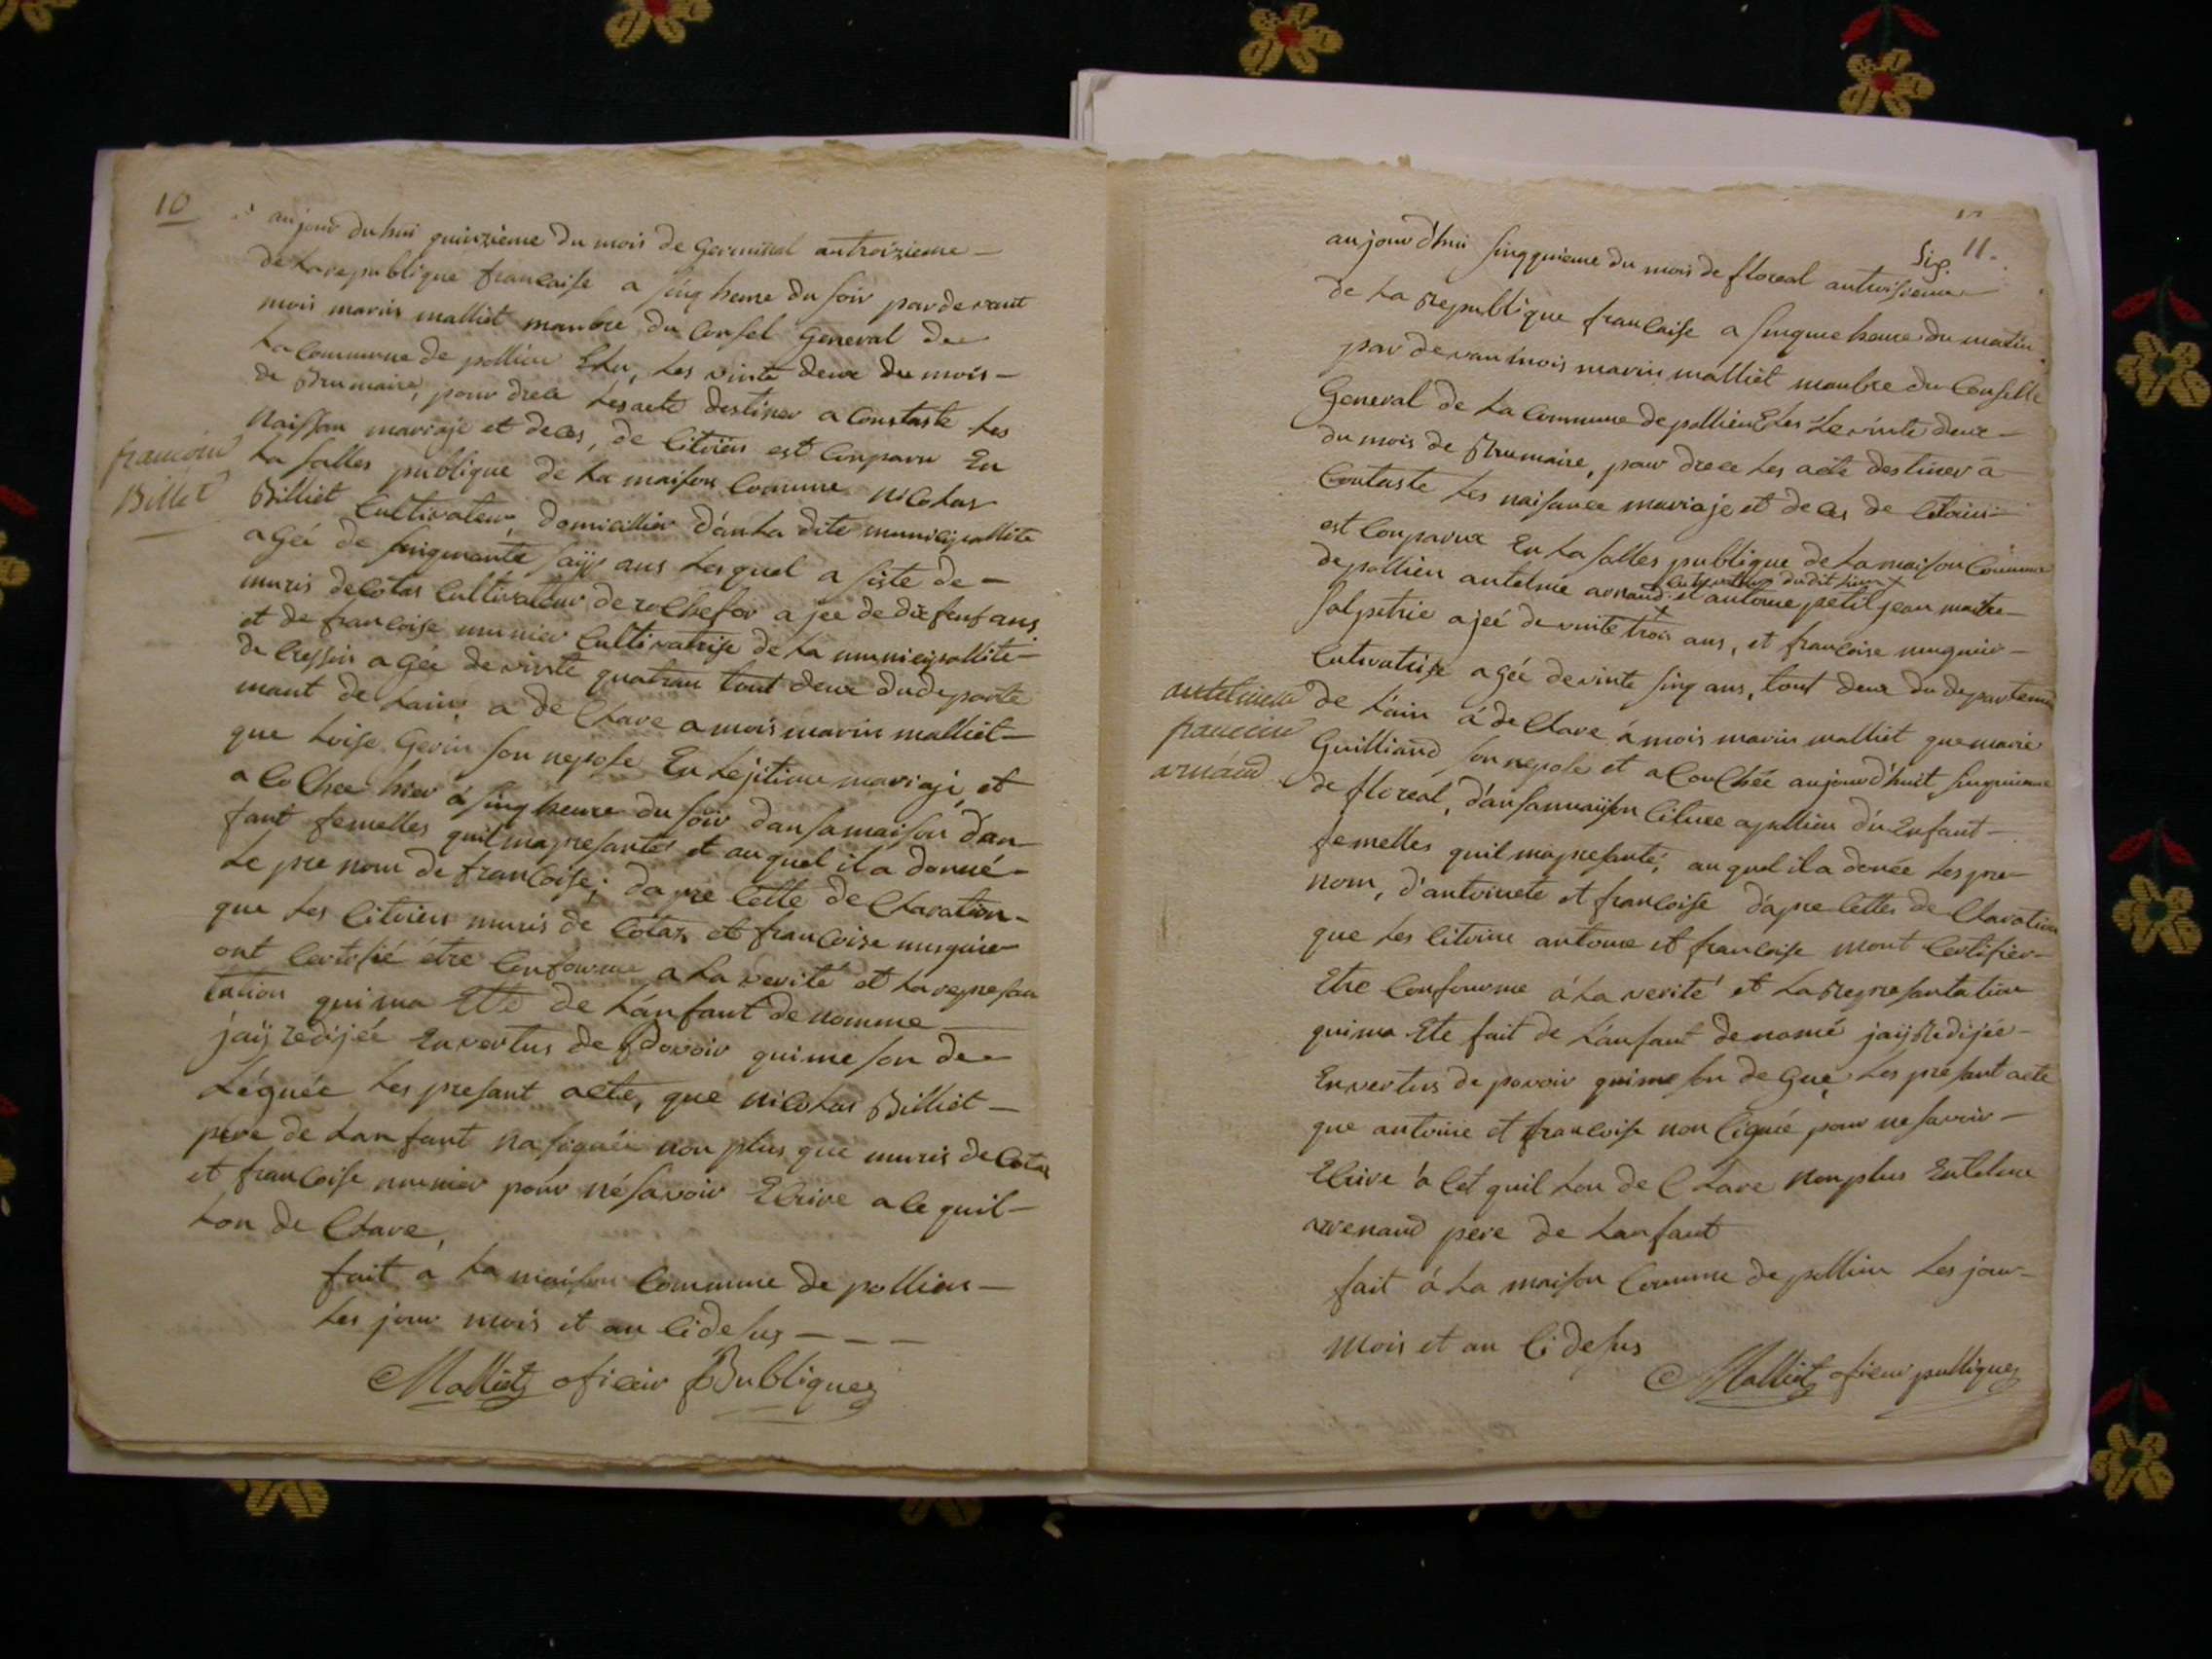 10
aujour duhui quinzieme du mois de Germinal antroizieme
de La republique francaise a sinq heure du soir pardevant
mois marin malliet manbre du Consel General de
La Commune de pollieu Elu, Les vinte deux du mois
de Brumaire, pour drece Les acte destiner a Constaste Les
Naissan mariaje et deces, de Citoien est Conparu En
La salles publique de La maison Comune Nicolas
francoise
Billet
Billiet Cultivateur, domicillier dans La dite municipallite
agée de sinquante ans Lesquel a siste de
muris decotas Cultivateur de rochefor a jee de dix ans
et de francoise munier Cultivatrise de La municipallite
de Cressin agée de vinte quatran tout deux du departe
mant de Lain, a de Clare a mois marin malliet
que Loise Gerin son nepose En Lejitime mariaje, et
a Couchee hier á sinq heure du soir dans samaison d'an
fant femelles quil ma presanté et auquel il a donné
Le pre nom de francoise, dapre Cette de Claration
que Les Citoien muris de Cotaz et francoise munier
ont Certifié étre Confourme a La verité et La represan
tation qui ma Eté de Lánfant de nomme
jaÿ redijée En vertus de povoir qui me son de
Léguée Les presant acte, que Nicolas Billiet
pere de Lanfant na signée non plus que muris de Cotas
et francoise munier pour né savoir Ecrire a Ce quil
Lon de Clare,
fait á La maison Commune de pollieu
Les jour mois et an Cidesus
Malliet oficier Publique
Sig. 11.
aujourd'hui sinqquieme du mois de floreal antroisieme
de La Republique francaise a sinquie heure du matin
par devan mois marin malliet manbre du Conselle
General de La Commune de pollieu Elus Le vinte deux
du mois de Brumaire, pour drece Les acte destiner á
Contaste Les naisance mariaje et deces de Citoien
est Conparux En La salles publique de La maison Comune
Cultivateur dudit Lieu
de pollieu antelmé arnaud et antoine petitjean maitre
salpetrie ajeé de vinte trois ans, et francoise munier
Cutivatrise agée de vinte sinq ans, tout deux du departemen
antoinette
francoise
arnaud
de Lain á de Clare á mois marin malliet que marie
Guilliand son nepose et a Couchée aujourd'huit sinquieme
de floreal, dan sa maison Cituee a pollieu d'un Enfant
femelles quil ma presanté, au quel il a donée Les pre
nom, d'antoinete et francoise d'apre Cettes de Claration
que Les Citoien antoine et francoise mont Certifier
Etre Confourme á La verité et La Represantation
qui ma Ete fait de Lánfant de nomé jaÿ Redijée
En vertus de povoir qui me son de Gue Les presant acte
que antoine et francoise non Cignée pour ne savoir
Ecrire á Cet quil Lon de Clare Non plus Entelme
arenaud pere de Lanfant
fait á La maison Comune de pollieu Les jour
Mois et an Cidesus
Malliet oficier pullique